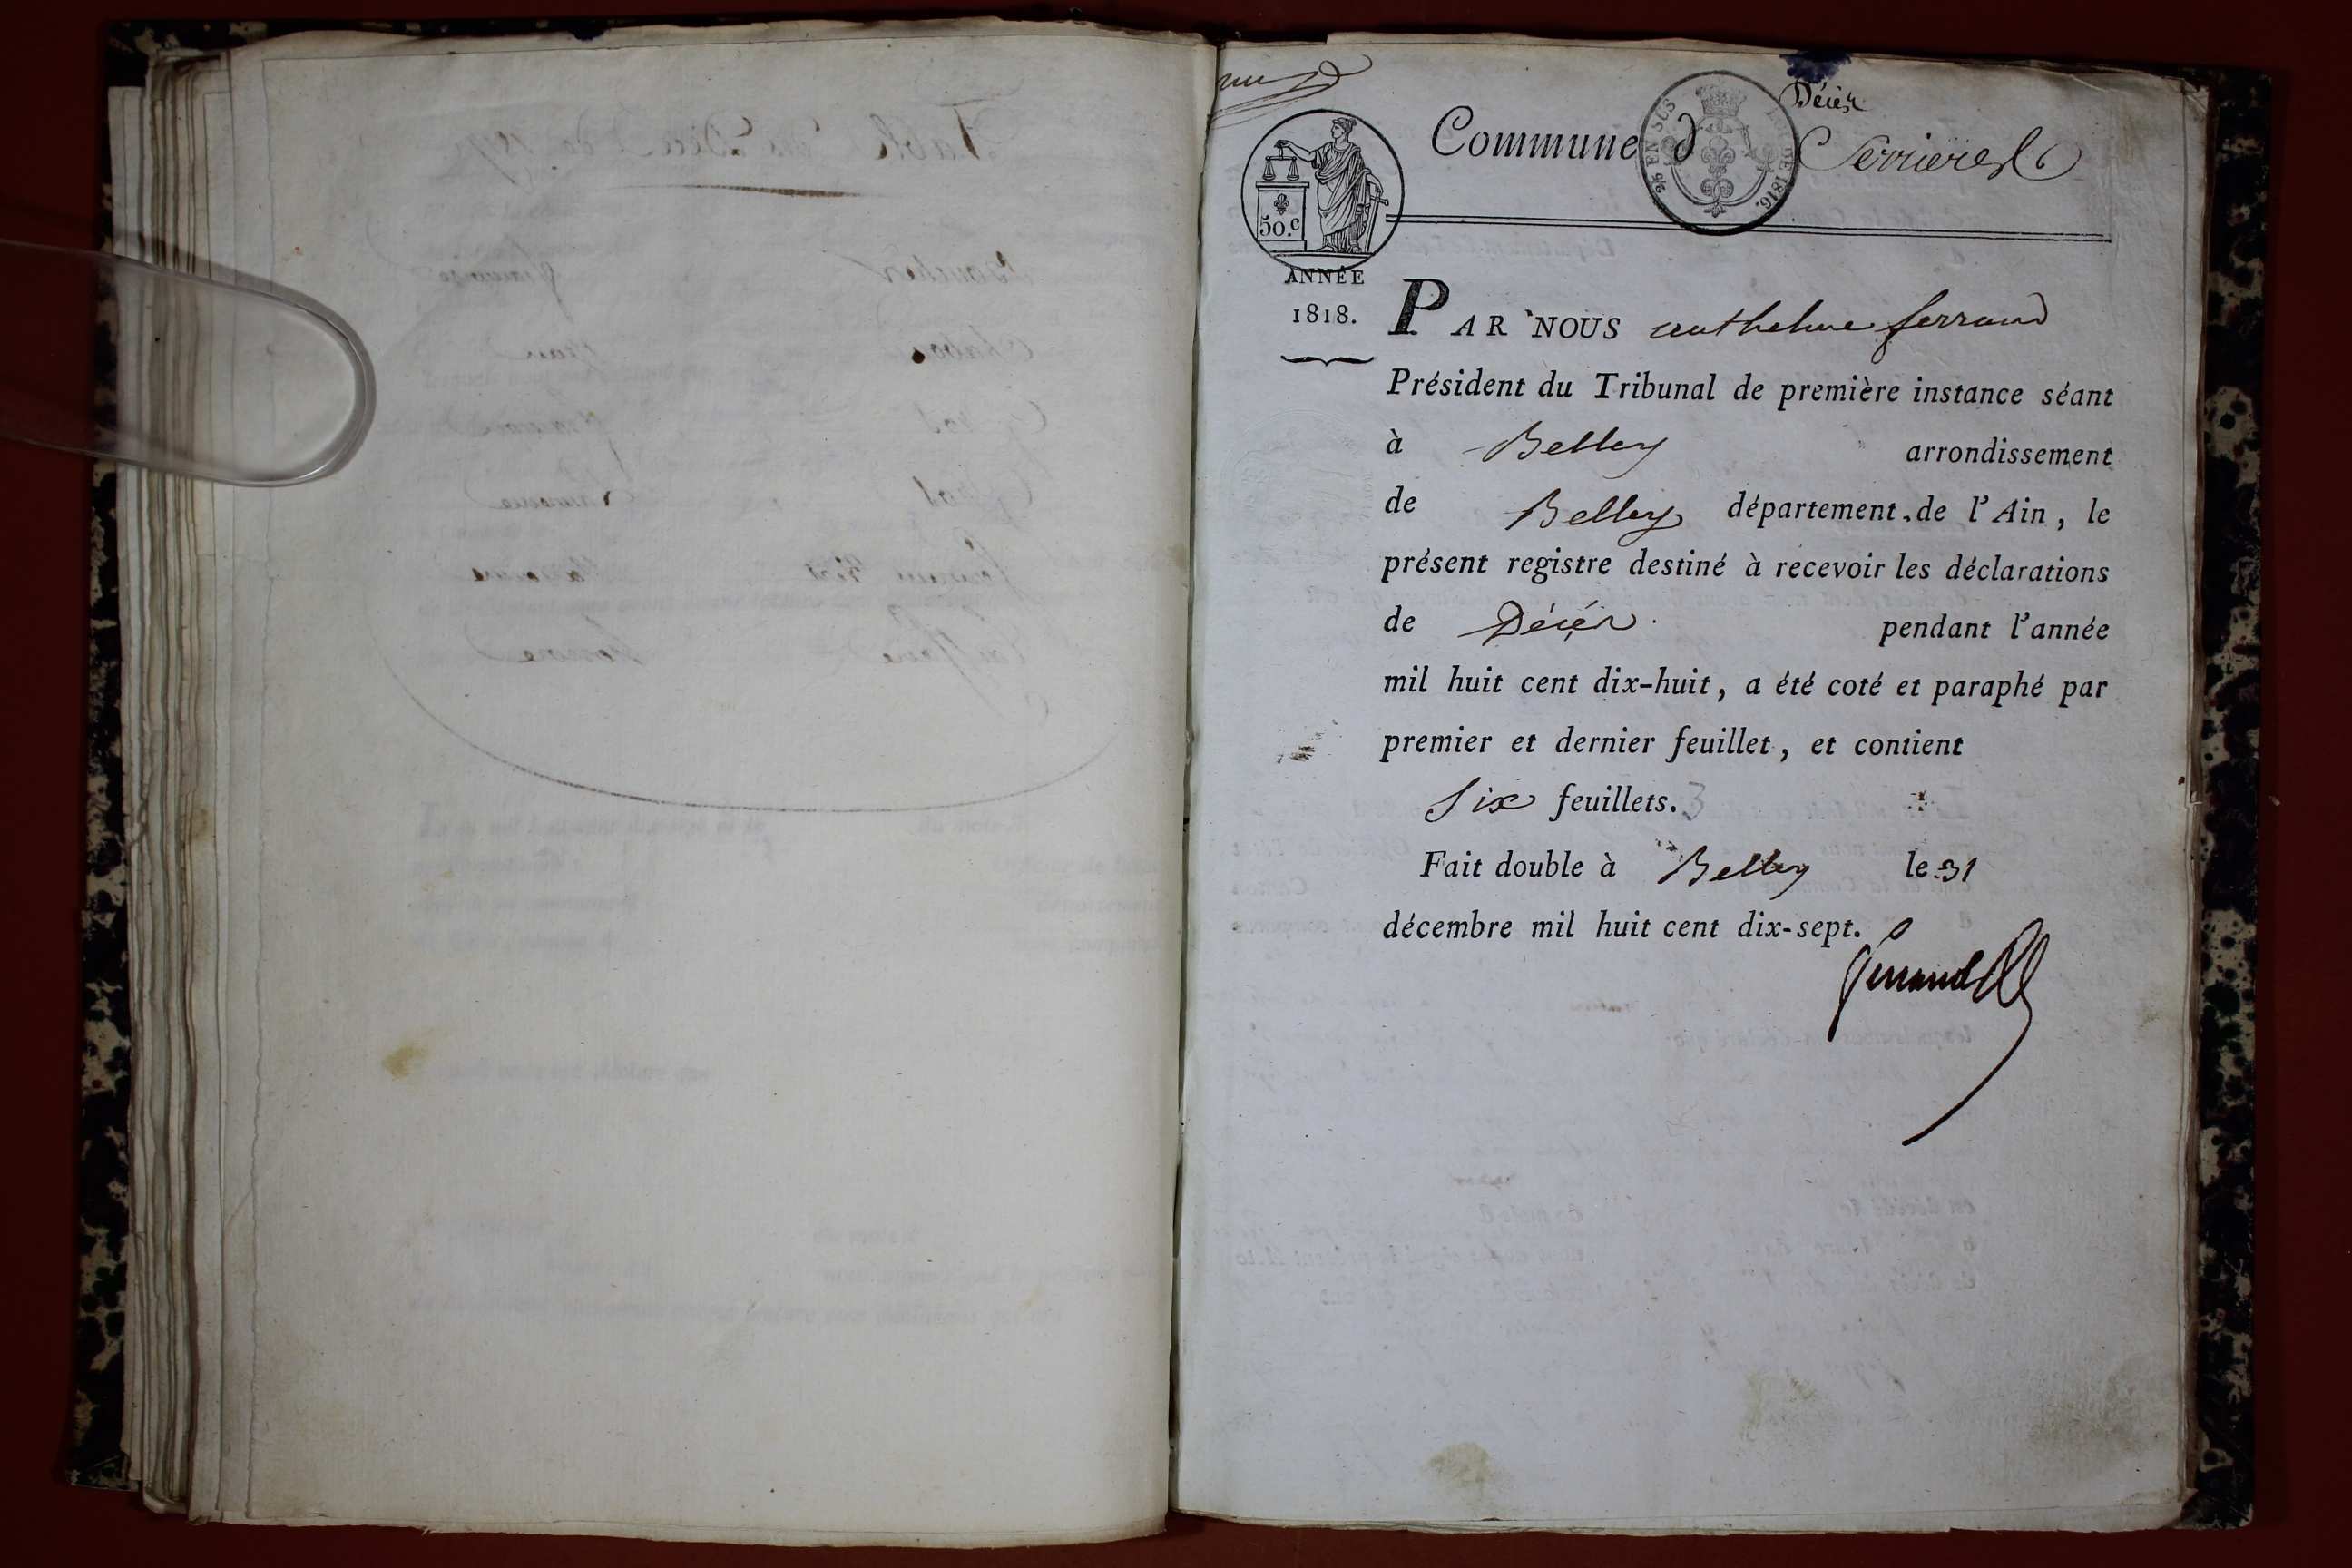 Décès
Commune d Serrieres
2/5 EN SUS
LOI DE 1816.
50.c
ANNÉE
1818.
PAR NOUS anthelme ferrand
Président du Tribunal de première instance séant
à Belley arrondissement
de Belley département de l'Ain, le
présent registre destiné à recevoir les déclarations
de Décès. pendant l'année
mil huit cent dix-huit, a été coté et paraphé par
premier et dernier feuillet, et contient
six feuillets. 3
Fait double à Belley le 31
décembre mil huit cent dix-sept.
ferrand